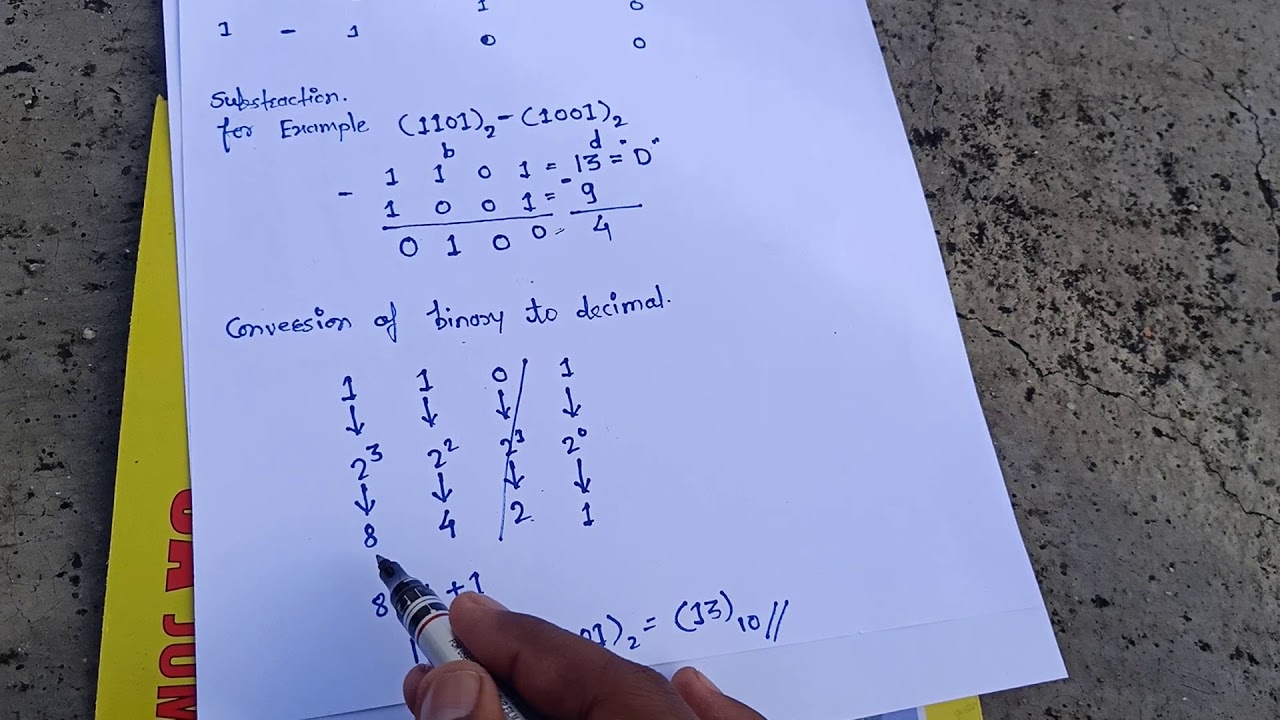 1 0
1 - 1 0 0
Substraction.
for Example (1101)₂-(1001)₂
b d
- 1 1 0 1 = 13 = "D"
1 0 0 1 = - 9
0 1 0 0 = 4
Conversion of binary to decimal.
1 1 0 1
↓ ↓ ↓ ↓
2³ 2² 2³ 2⁰
↓ ↓ ↓ ↓
8 4 2 1
8 +1
01)₂ = (13)₁₀//